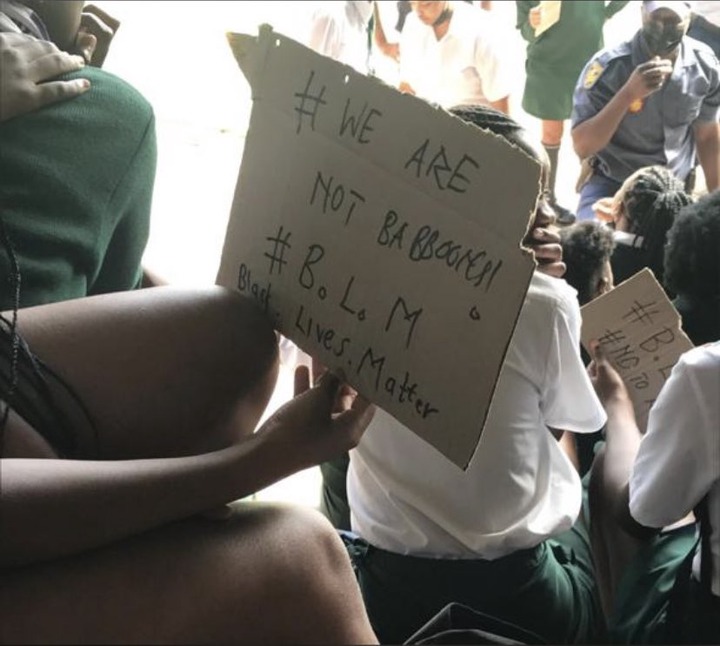 # WE ARE
NOT BABBOONS!!
# B.L.M
Black. Lives. Matter
# B.L
#NO TO